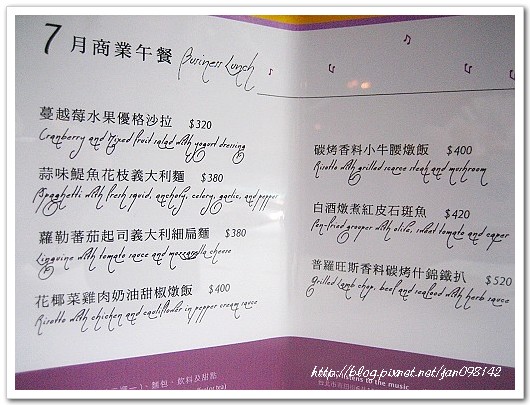 7月商業午餐 Business Lunch
蔓越莓水果優格沙拉 $320
Cranberry and Mixed fruit salad with yogurt dressing
蒜味鯷魚花枝義大利麵 $380
Spaghetti with fresh squid, anchovy, celery, garlic, and pepper
蘿勒蕃茄起司義大利細扁麵 $380
Linguine with tomato sauce and mozzarella cheese
花椰菜雞肉奶油甜椒燉飯 $400
Risotto with chicken and cauliflower in pepper cream sauce
碳烤香料小牛腰燉飯 $400
Risotto with grilled scarce steak and mushroom
白酒燉煮紅皮石斑魚 $420
Pan-fried grouper with olive, dried tomato and caper
普羅旺斯香料碳烤什錦鐵扒 $520
Grilled Lamb chop, beef and seafood with herb sauce
、麵包、飲料及甜點
listens to the music
http://blog.pixnet.net/jan098142